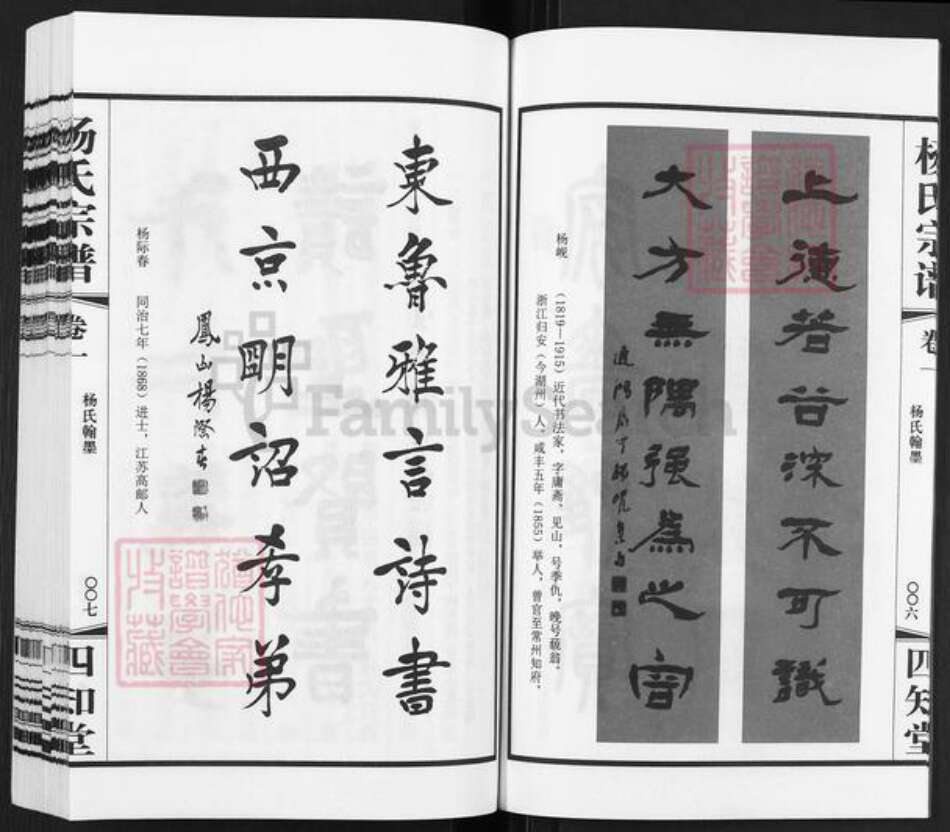 杨氏宗谱
卷一
杨氏翰墨
〇〇六
四知堂
上德若谷深不可識
大方無隅强為之容
杨岘
(1819—1915)近代书法家，字庸斋、见山，号季仇，晚号藐翁。
浙江归安（今湖州）人，咸丰五年（1855）举人，曾官至常州知府，
東魯雅言詩書
西京明詔孝弟
鳳山楊際春
杨际春 同治七年（1868）进士，江苏高邮人
杨氏宗谱
卷一
杨氏翰墨
〇〇七
四知堂
FamilySearch